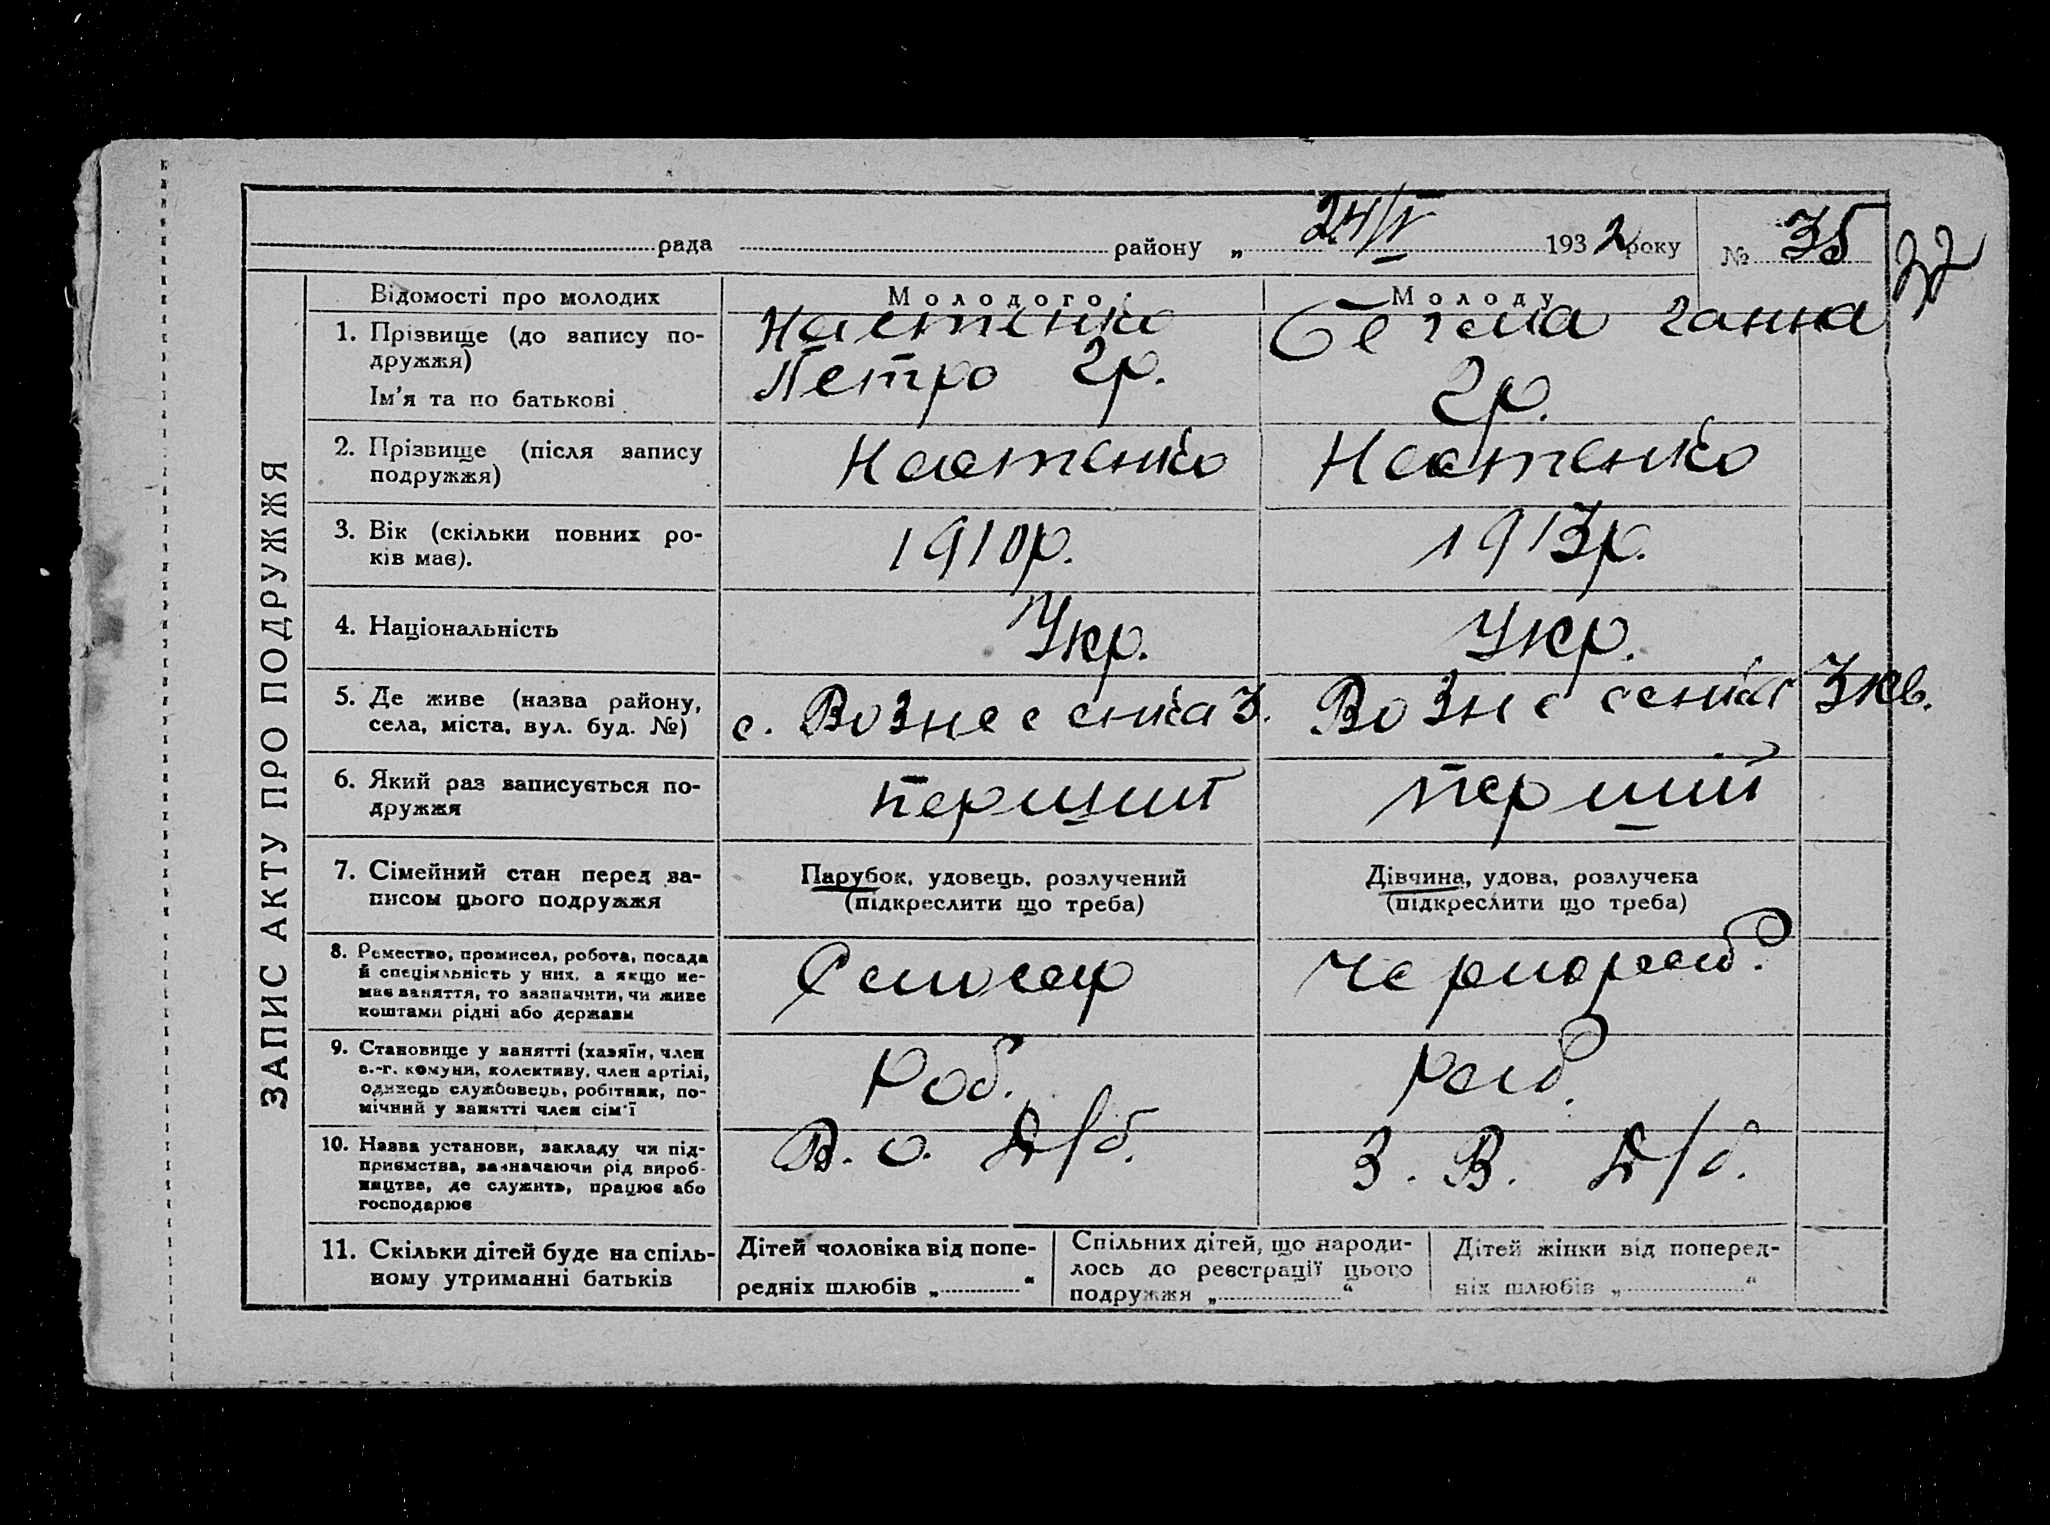 рада району „ 24/V 1932 року № 35
32
ЗАПИС АКТУ ПРО ПОДРУЖЖЯ
Відомості про молодих Молодого Молоду
1. Прізвище (до запису по-
дружжя)
Ім'я та по батькові
Настенко
Петро Гр.
Ганна
Гр.
2. Прізвище (після запису
подружжя)
Настенко Настенко
3. Вік (скільки повних ро-
ків має).
1910р. 1913р.
4. Національність
Укр. Укр.
5. Де живе (назва району,
села, міста, вул. буд. №)
с. Вознесенка 3. Вознесенка 3 кв.
6. Який раз записується по-
дружжя
перший перший
7. Сімейний стан перед за-
писом цього подружжя
Парубок, удовець, розлучений
(підкреслити що треба)
Дівчина, удова, розлучена
(підкреслити що треба)
8. Ремество, промисел, робота, посада
й спеціяльність у них, а якщо не-
має заняття, то зазначити, чи живе
коштами рідні або держави
Слюсар Чернораб.
9. Становище у занятті (хазяїн, член
с.-г. комуни, колективу, член артілі,
одинець службовець, робітник, по-
мічний у занятті член сім'ї
Роб. Раб.
10. Назва установи, закладу чи під-
приємства, зазначаючи рід вироб-
ництва, де служить, працює або
господарює
В. о. Д/б. З. В. Д/б.
11. Скільки дітей буде на спіль-
ному утриманні батьків
Дітей чоловіка від попе-
редніх шлюбів „ “
Спільних дітей, що народи-
лось до реєстрації цього
подружжя „ “
Дітей жінки від поперед-
ніх шлюбів „ “